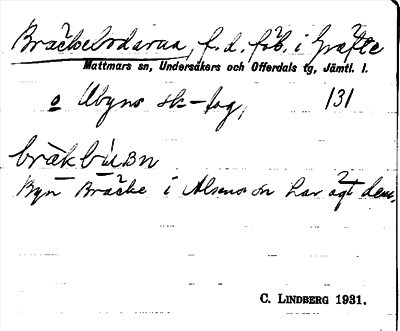 Bräckebodarna, f.d. fäb. i Gräfte
Mattmars sn, Undersåkers och Offerdals tg, Jämtl. l.
o Ubyns sk-lag, 131
bräkbúɯn
Byn Bräcke i Alsens sn har ägt dem.
C. LINDBERG 1931.